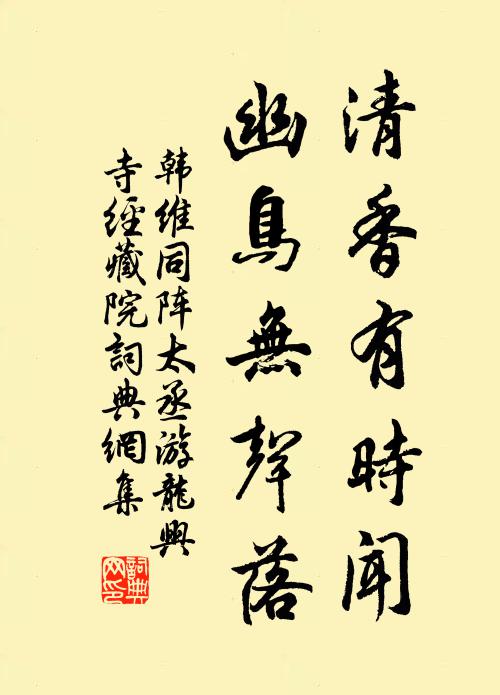 清香有時聞
幽鳥無聲落
韩維同阵太丞游龍興
寺經藏院詞典網集
詞典
网印